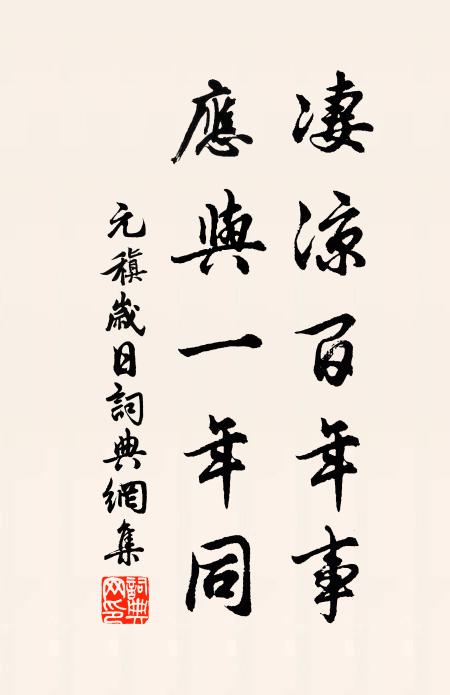 凄涼百年事
應與一年同
元稹歲日詞典網集
詞典網印